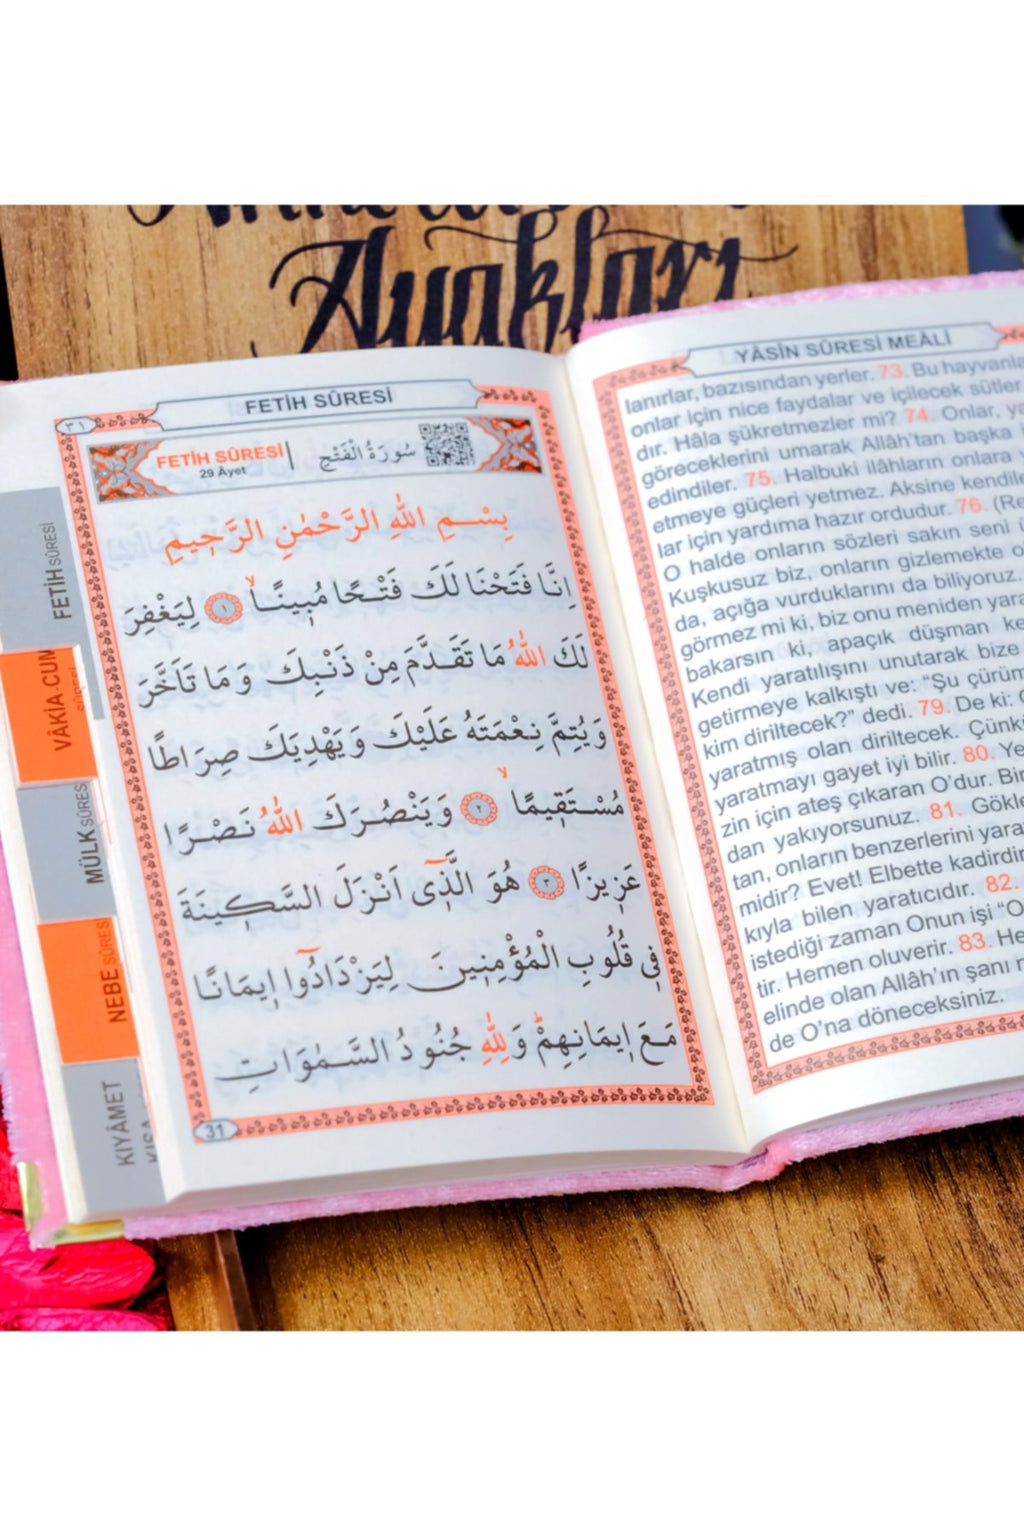 Ayakları
FETİH SÛRESİ
٣١
FETİH SÛRESİ
29 Âyet
سُورَةُ الْفَتْحِ
بِسْمِ اللهِ الرَّحْمٰنِ الرَّحِيمِ
اِنَّا فَتَحْنَا لَكَ فَتْحًا مُبِينًاۙ ١ لِيَغْفِرَ
لَكَ اللهُ مَا تَقَدَّمَ مِنْ ذَنْبِكَ وَمَا تَاَخَّرَ
وَيُتِمَّ نِعْمَتَهُ عَلَيْكَ وَيَهْدِيَكَ صِرَاطًا
مُسْتَقِيمًاۙ ٢ وَيَنْصُرَكَ اللهُ نَصْرًا
عَزِيزًا ٣ هُوَ الَّذِٓى اَنْزَلَ السَّكِينَةَ
فِى قُلُوبِ الْمُؤْمِنِينَ لِيَزْدَادُٓوا اِيمَانًا
مَعَ اِيمَانِهِمْۜ وَلِلّٰهِ جُنُودُ السَّمٰوَاتِ
31
FETİH SÛRESİ
VÂKİA-CUM
SÛRESİ
MÜLK SÛRES
NEBE SÛRES
KIYÂMET
YÂSÎN SÛRESİ MEÂLİ
lanırlar, bazısından yerler. 73. Bu hayvanla
onlar için nice faydalar ve içilecek sütler
dır. Hâla şükretmezler mi? 74. Onlar, ya
göreceklerini umarak Allâh'tan başka
edindiler. 75. Halbuki ilâhların onlara
etmeye güçleri yetmez. Aksine kendile
lar için yardıma hazır ordudur. 76. (Re
O halde onların sözleri sakın seni
Kuşkusuz biz, onların gizlemekte o
da, açığa vurduklarını da biliyoruz.
görmez mi ki, biz onu meniden yara
bakarsın ki, apaçık düşman ke
Kendi yaratılışını unutarak bize
getirmeye kalkıştı ve: "Şu çürüm
kim diriltecek?" dedi. 79. De ki:
yaratmış olan diriltecek. Çünk
yaratmayı gayet iyi bilir. 80. Ye
zin için ateş çıkaran O'dur. Bir
dan yakıyorsunuz. 81. Gökle
tan, onların benzerlerini yara
midir? Evet! Elbette kadirdir
kıyla bilen yaratıcıdır. 82.
istediği zaman Onun işi "O
tir. Hemen oluverir. 83. He
elinde olan Allâh'ın şanı
de O'na döneceksiniz.